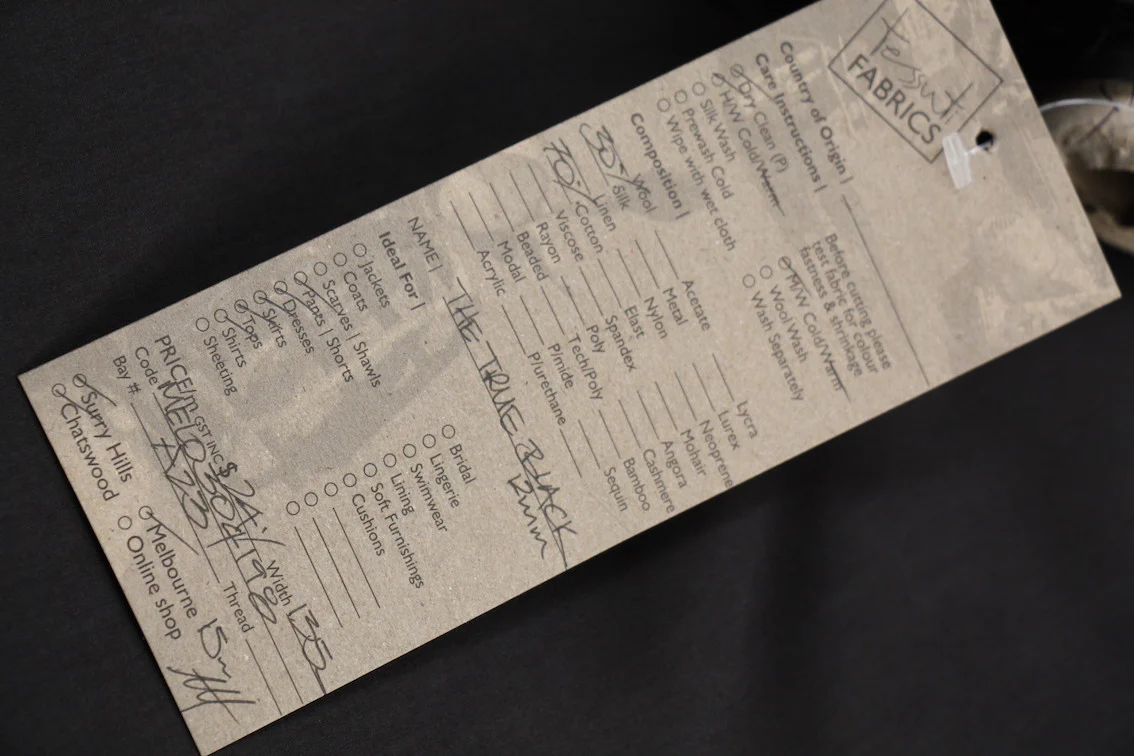 tessuti
FABRICS
Country of Origin |
Care Instructions |
Dry Clean (P)
H/W Cold/Warm
Silk Wash
Prewash Cold
Wipe with wet cloth
Before cutting please
test fabric for colour
fastness & shrinkage
H/W Cold/Warm
Wool Wash
Wash Separately
Composition |
Wool
30% Silk
Linen
70% Cotton
Viscose
Rayon
Beaded
Modal
Acrylic
Acetate
Metal
Nylon
Elast
Spandex
Poly
Tech/Poly
P/mide
P/urethane
Lycra
Lurex
Neoprene
Mohair
Angora
Cashmere
Bamboo
Sequin
NAME | THE TRUE BLACK
12mm
Ideal For |
Jackets
Coats
Scarves | Shawls
Pants | Shorts
Dresses
Skirts
Tops
Shirts
Sheeting
Bridal
Lingerie
Swimwear
Lining
Soft Furnishings
Cushions
PRICE/m GST INC $ Width 135
Code
Bay # A23 Thread
Surry Hills
Chatswood
Melbourne 15m
Online shop